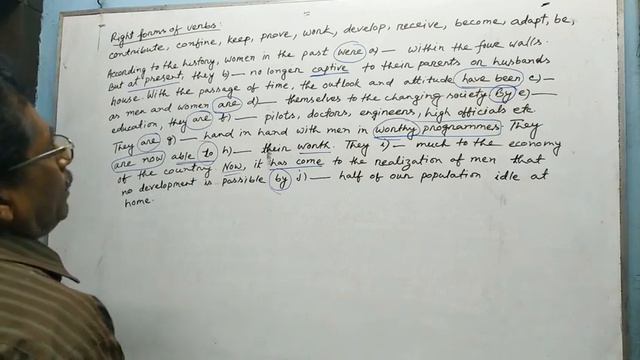 Right forms of verbs:
contribute, confine, keep, prove, work, develop, receive, become, adapt, be,
According to the history, women in the past were a)— within the four walls.
But at present, they b)— no longer captive to their parents or husbands
house. With the passage of time, the outlook and attitude have been c)—
as men and women are d)— themselves to the changing society. By e)—
education, they are f)— pilots, doctors, engineers, high officials etc.
They are g)— hand in hand with men in worthy programmes. They
are now able to h)— their worth. They i)— much to the economy
of the country. Now, it has come to the realization of men that
no development is passible by j)— half of our population idle at
home.